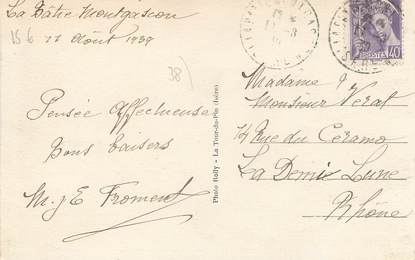 La Bâtie Montgascon
11 Août 1939
15 €
38
Pensée Affectueuse
Bons baisers
M. & E Froment
Photo Rolly - La Tour-du-Pin (Isère)
POSTES 40
Madame &
Monsieur Veral
14 Rue du Ceramo
La Demi Lune
Rhône